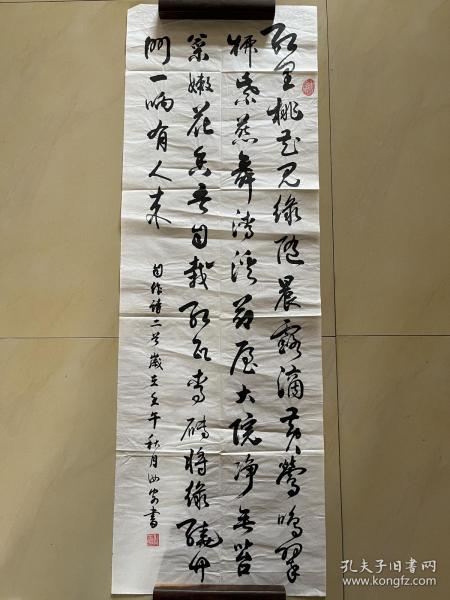 红里桃花见绿随晨露滴黄鶯鸣翠
柳紫燕舞清溪茅屋大院净无苔
菜嫩花香自栽红瓦青砖将绿绕开
门一响有人来
自作诗二首岁在壬午秋月书
孔夫子旧书网
www.kongfz.com